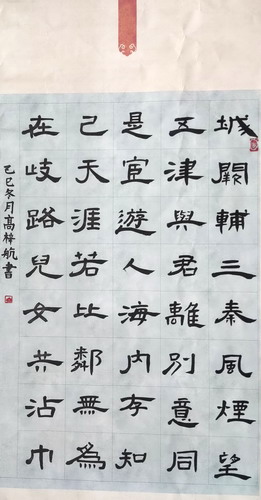 城闕輔三秦風煙望
五津與君離別意同
是宦遊人海內存知
己天涯若比鄰無爲
在歧路兒女共沾巾
乙巳冬月高梓航書